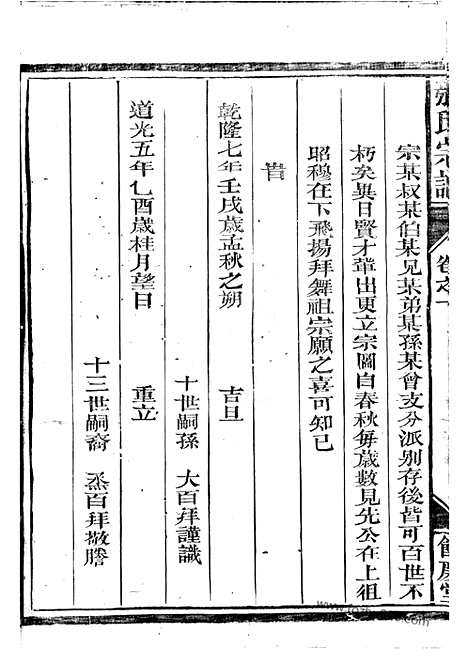 氏宗譜
卷之一
宗某叔某伯某兄某弟某孫某曾支分派別存後皆可百世不
朽矣異日賢才輩出更立宗圖自春秋每歲數見先公在上徂
昭穆在下飛揚拜舞祖宗願之喜可知已
旹
乾隆七年壬戌歲孟秋之朔 吉旦
十世嗣孫 大百拜謹識
道光五年乙酉歲桂月望日 重立
十三世嗣裔 烝百拜敬謄